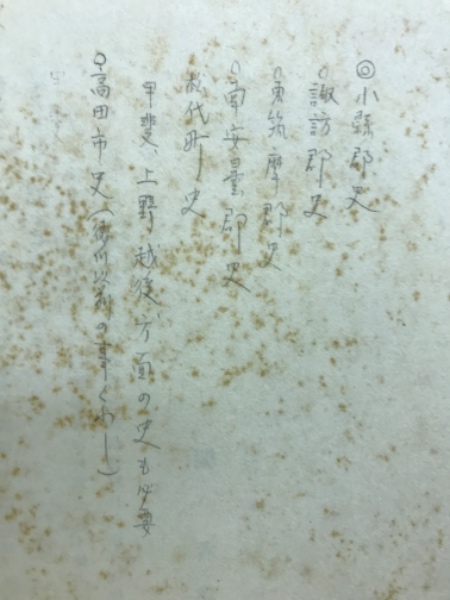 ◎小縣郡史
○諏訪郡史
○東筑摩郡史
○南安曇郡史
松代町史
甲斐、上野、越後方面の史も必要
○高田市史(徳川以前の事くわし)